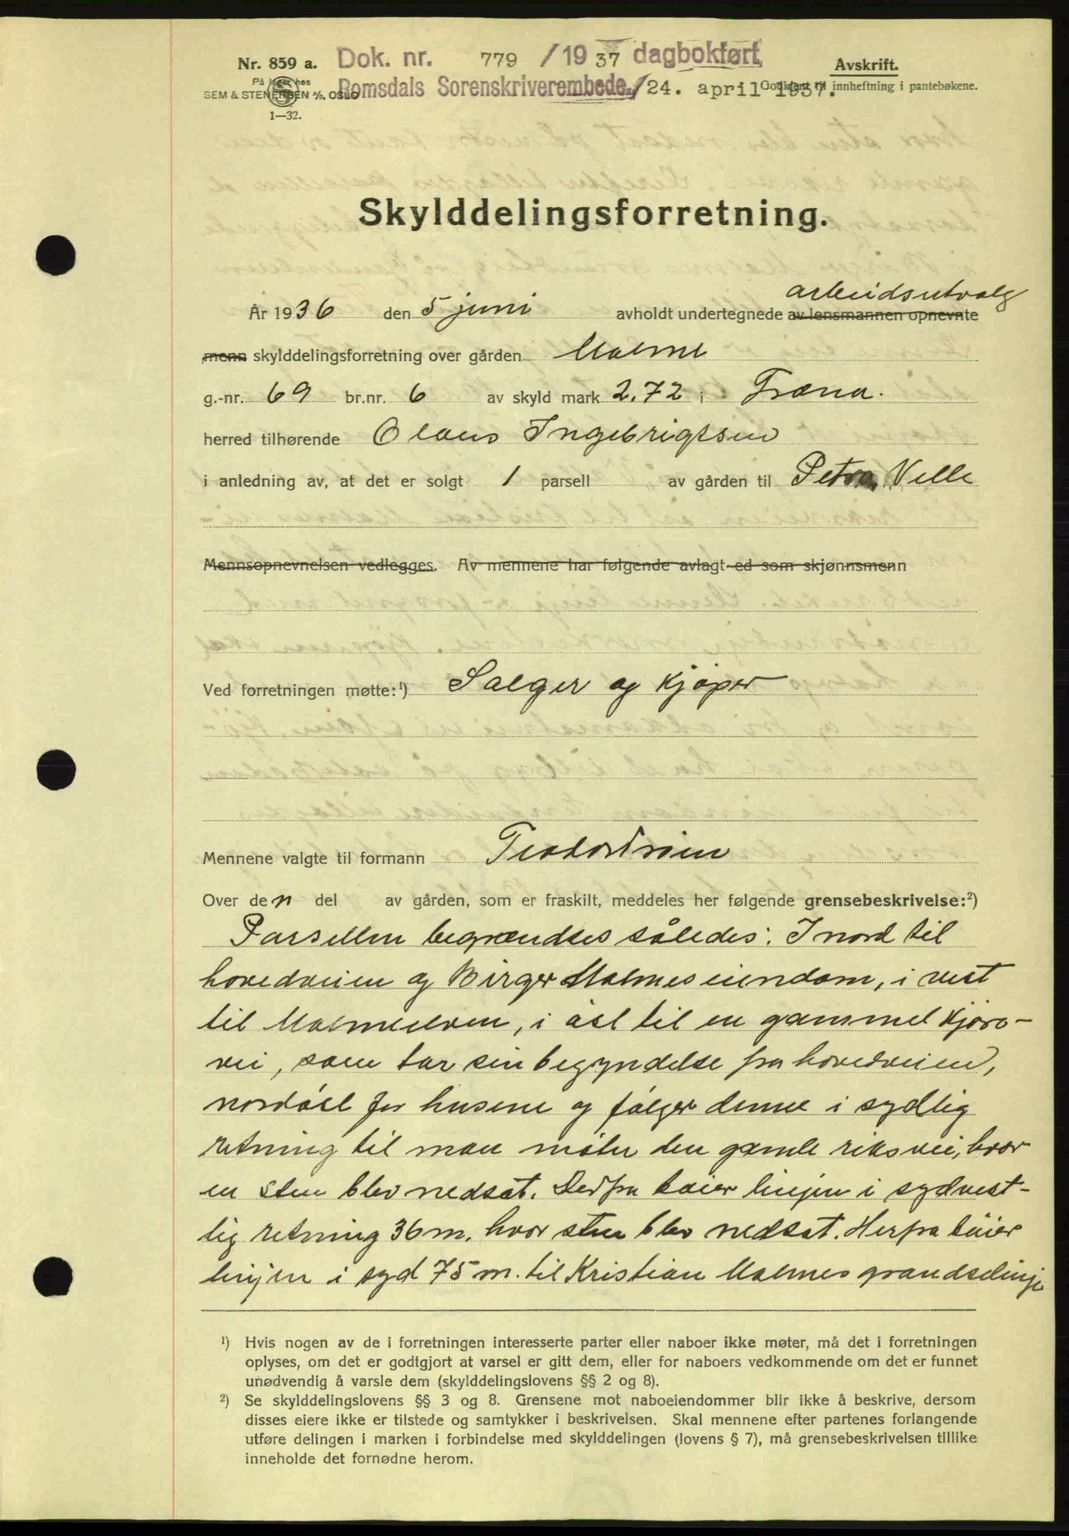 Nr. 859 a. Dok. nr. 779 /1937 dagbokført Avskrift.
På lager hos
SEM & STENERSEN A/S, OSLO Romsdals Sorenskriverembede 24. april 1937. Godkjent til innheftning i pantebøkene.
1—32.
Skylddelingsforretning.
arbeidsutvalg
År 1936 den 5 juni avholdt undertegnede av lensmannen opnevnte
menn skylddelingsforretning over gården Malme
g.-nr. 69 br.nr. 6 av skyld mark 2,72 i Fræna.
herred tilhørende Olaus Ingebrigtsen
i anledning av, at det er solgt 1 parsell av gården til Petra Velle
Mennsopnevnelsen vedlegges. Av mennene har følgende avlagt ed som skjønnsmenn
Ved forretningen møtte:¹) Sælger og kjøper
Mennene valgte til formann
Over den del av gården, som er fraskilt, meddeles her følgende grensebeskrivelse:²)
Parsellen begrændses således: I nord til
hovedveien og Birger Malmes eiendom, i vest
til Malmeelven, i øst til en gammel kjøre-
vei, som tar sin begyndelse fra hovedveien,
nordøst for husene og følger denne i sydlig
retning til man møter den gamle riksvei, hvor
en sten blev nedsat. Derfra tæier linjen i sydvest-
lig retning 36 m. hvor sten blev nedsat. Herfra tæier
linjen i syd 75 m. til Kristian Malmes grændselinje
¹) Hvis nogen av de i forretningen interesserte parter eller naboer ikke møter, må det i forretningen
oplyses, om det er godtgjort at varsel er gitt dem, eller for naboers vedkommende om det er funnet
unødvendig å varsle dem (skylddelingslovens §§ 2 og 8).
²) Se skylddelingslovens §§ 3 og 8. Grensene mot naboeiendommer blir ikke å beskrive, dersom
disses eiere ikke er tilstede og samtykker i beskrivelsen. Skal mennene efter partenes forlangende
utføre delingen i marken i forbindelse med skylddelingen (lovens § 7), må grensebeskrivelsen tillike
inneholde det fornødne herom.